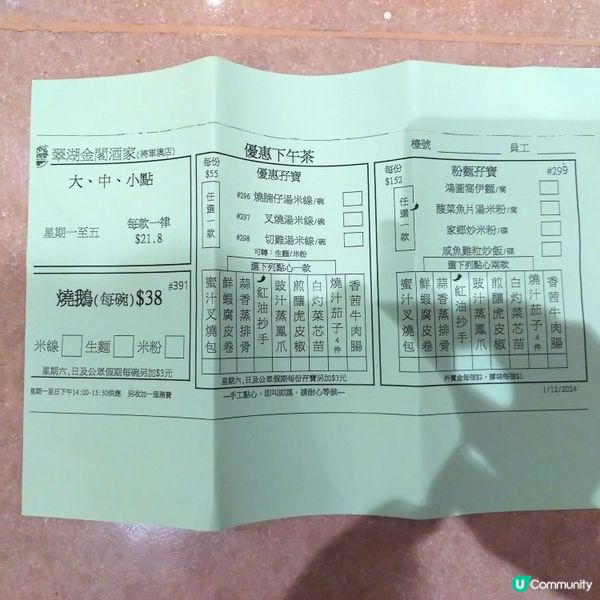 翠湖金閣酒家(將軍澳店)
大、中、小點
星期一至五
每款一律
$21.8
燒鵝(每碗)$38
#391
米線
生麵
米粉
星期六,日及公眾假期每碗另加$3元
星期一至日下午14:00-15:30供應 另收加一服務費
優惠下午茶
每份
$55
優惠孖寶
任選一款
#296 燒腩仔湯米線/碗
#297 叉燒湯米線/碗
#298 切雞湯米線/碗
可轉:生麵/米粉
選下列點心一款
蜜汁叉燒包
鮮蝦腐皮卷
蒜香蒸排骨
紅油抄手
豉汁蒸鳳爪
煎釀虎皮椒
白灼菜芯苗
燒汁茄子4件
香茜牛肉腸
星期六,日及公眾假期每份孖寶另加$3元
—手工點心,即叫即蒸,請耐心等候—
檯號
員工
每份
$152
粉麵孖寶
#299
任選一款
鴻圖窩伊麵/窩
酸菜魚片湯米粉/窩
家鄉炒米粉/碟
咸魚雞粒炒飯/碟
選下列點心兩款
蜜汁叉燒包
鮮蝦腐皮卷
蒜香蒸排骨
紅油抄手
豉汁蒸鳳爪
煎釀虎皮椒
白灼菜芯苗
燒汁茄子4件
香茜牛肉腸
外賣盒每個$2、膠袋每個$1
1/12/2024
U Community